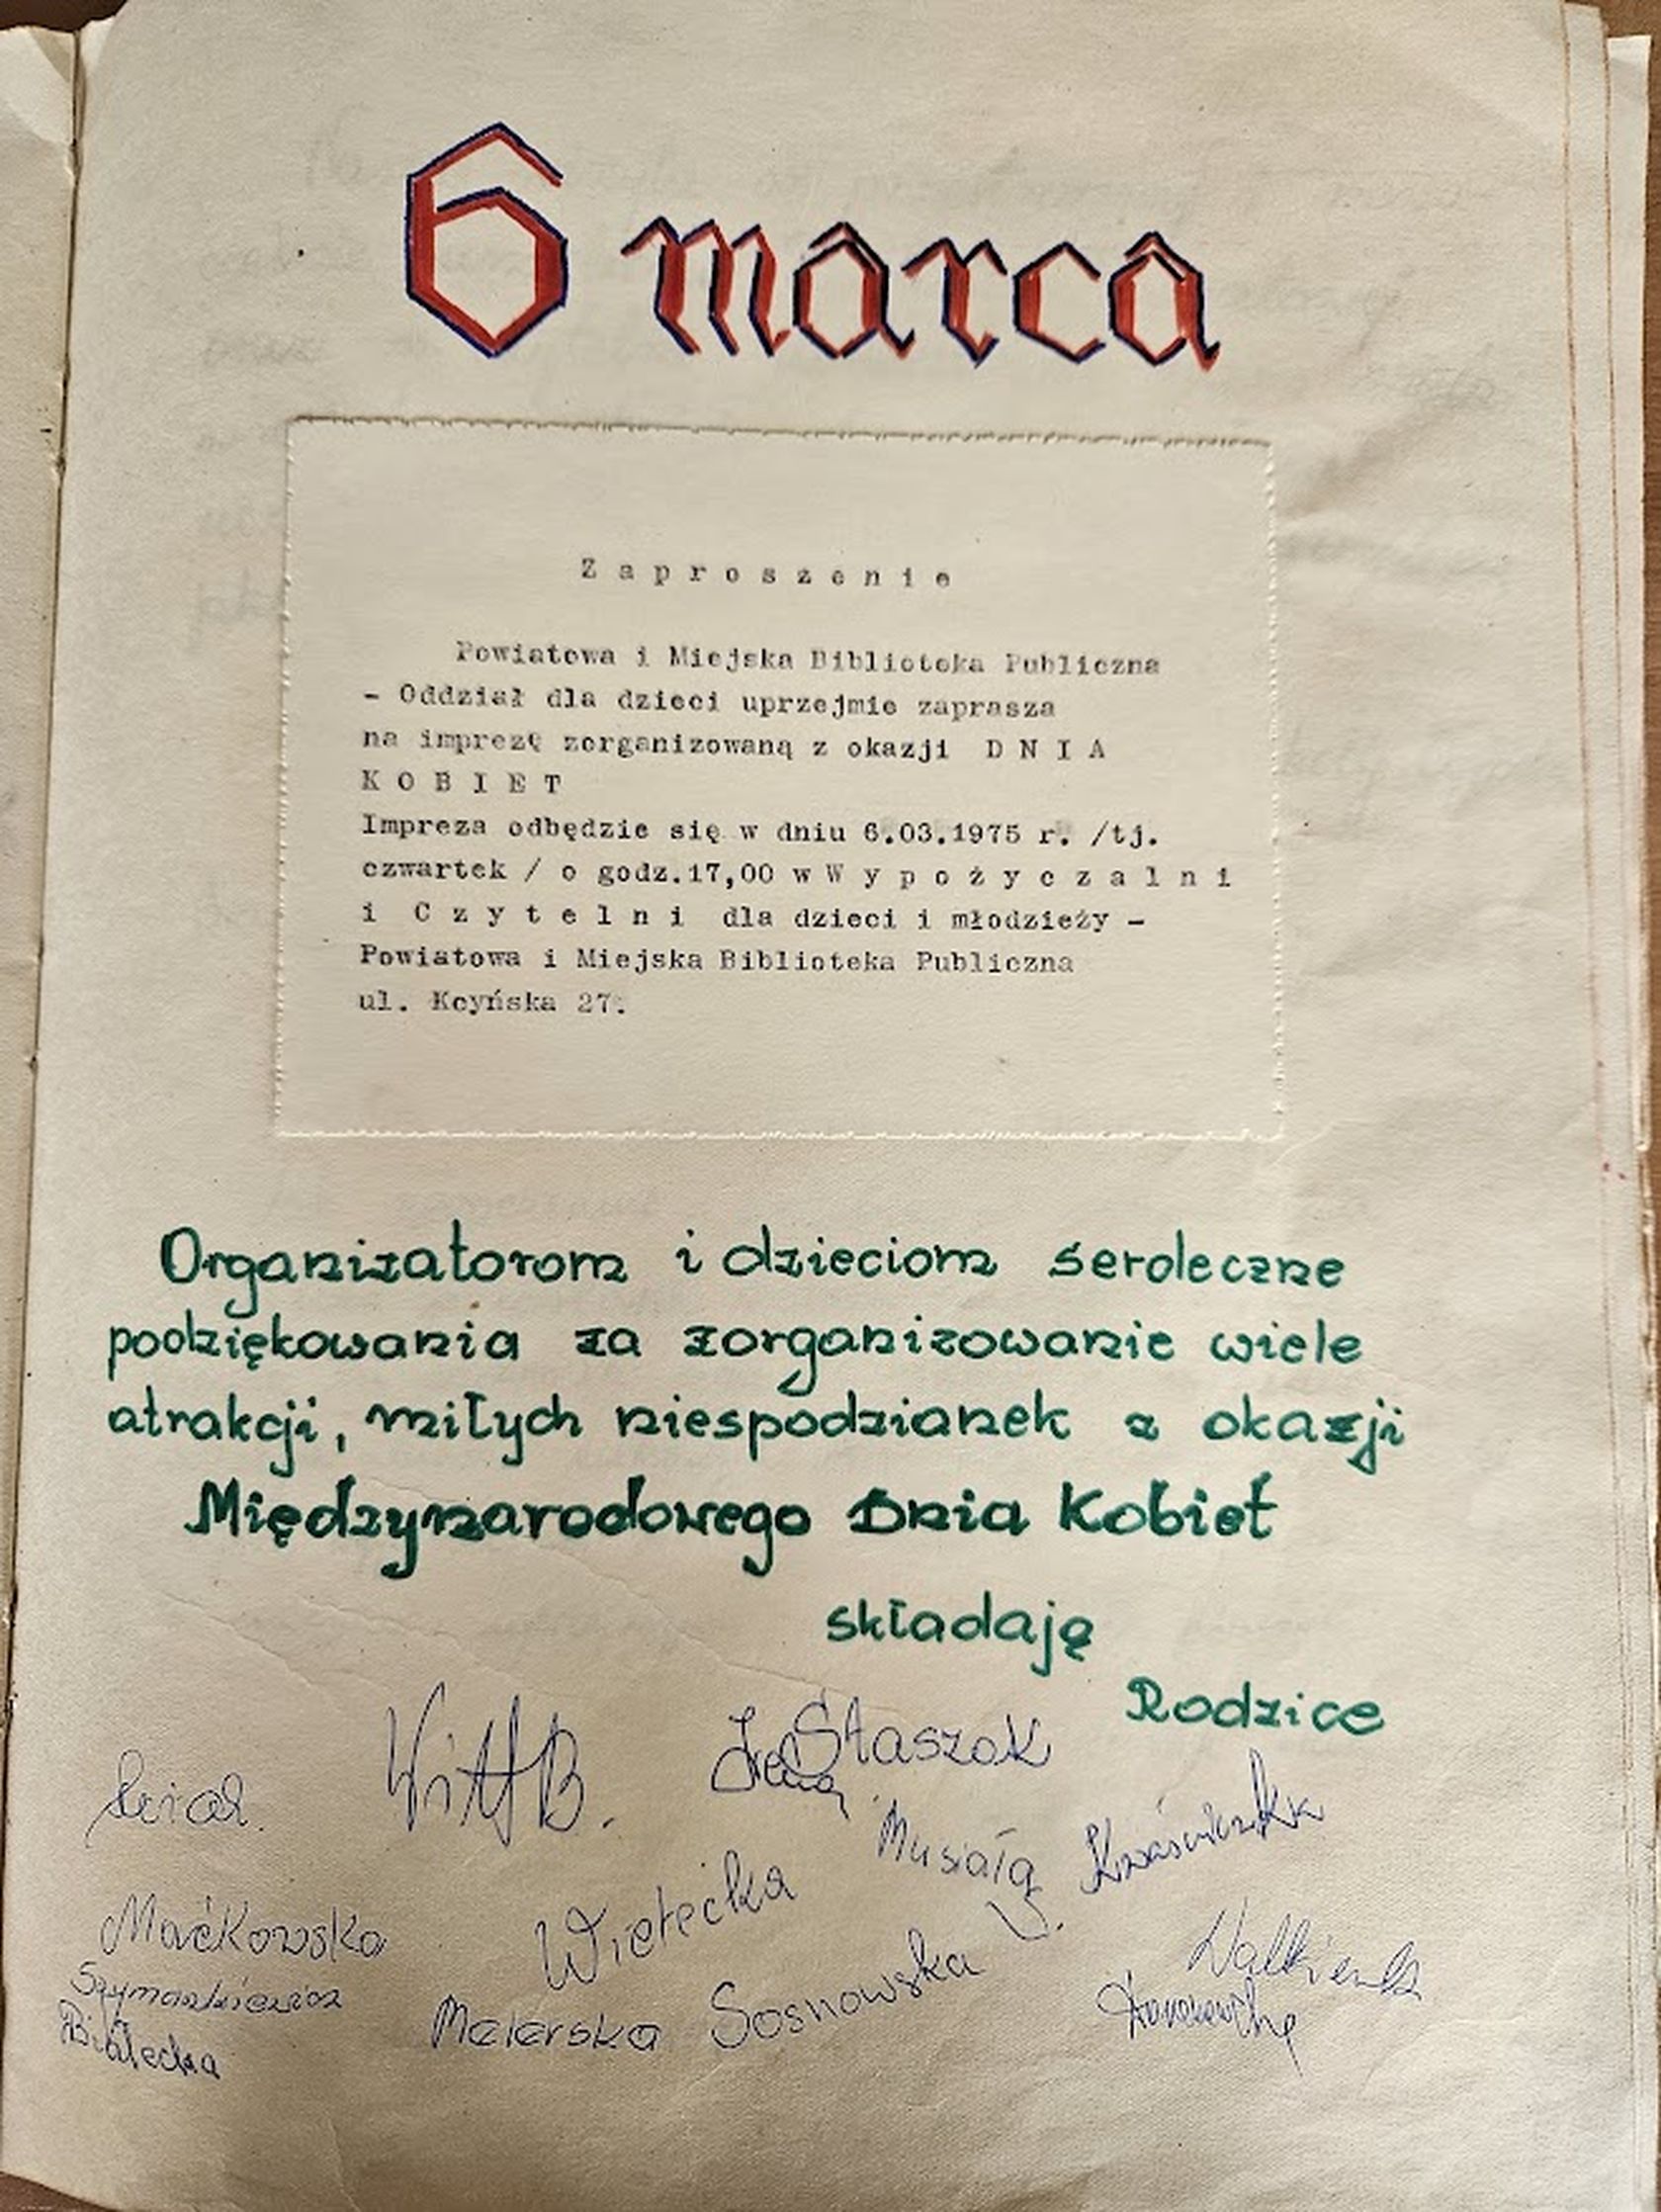 6 marca
Zaproszenie
Powiatowa i Miejska Biblioteka Publiczna
- Oddział dla dzieci uprzejmie zaprasza
na imprezę zorganizowaną z okazji DNIA
KOBIET
Impreza odbędzie się w dniu 6.03.1975 r. /tj.
czwartek / o godz.17,00 w Wypożyczalni
i Czytelni dla dzieci i młodzieży -
Powiatowa i Miejska Biblioteka Publiczna
ul. Kcyńska 27.
Organizatorom i dzieciom serdeczne
podziękowania za zorganizowanie wiele
atrakcji, miłych niespodzianek z okazji
Międzynarodowego Dnia Kobiet
składają
Rodzice
Witt B.
Irena Staszak
Musiała
Maćkowska
Wietecka
Szymankiewicz
Melerska
Sosnowska
Białecka